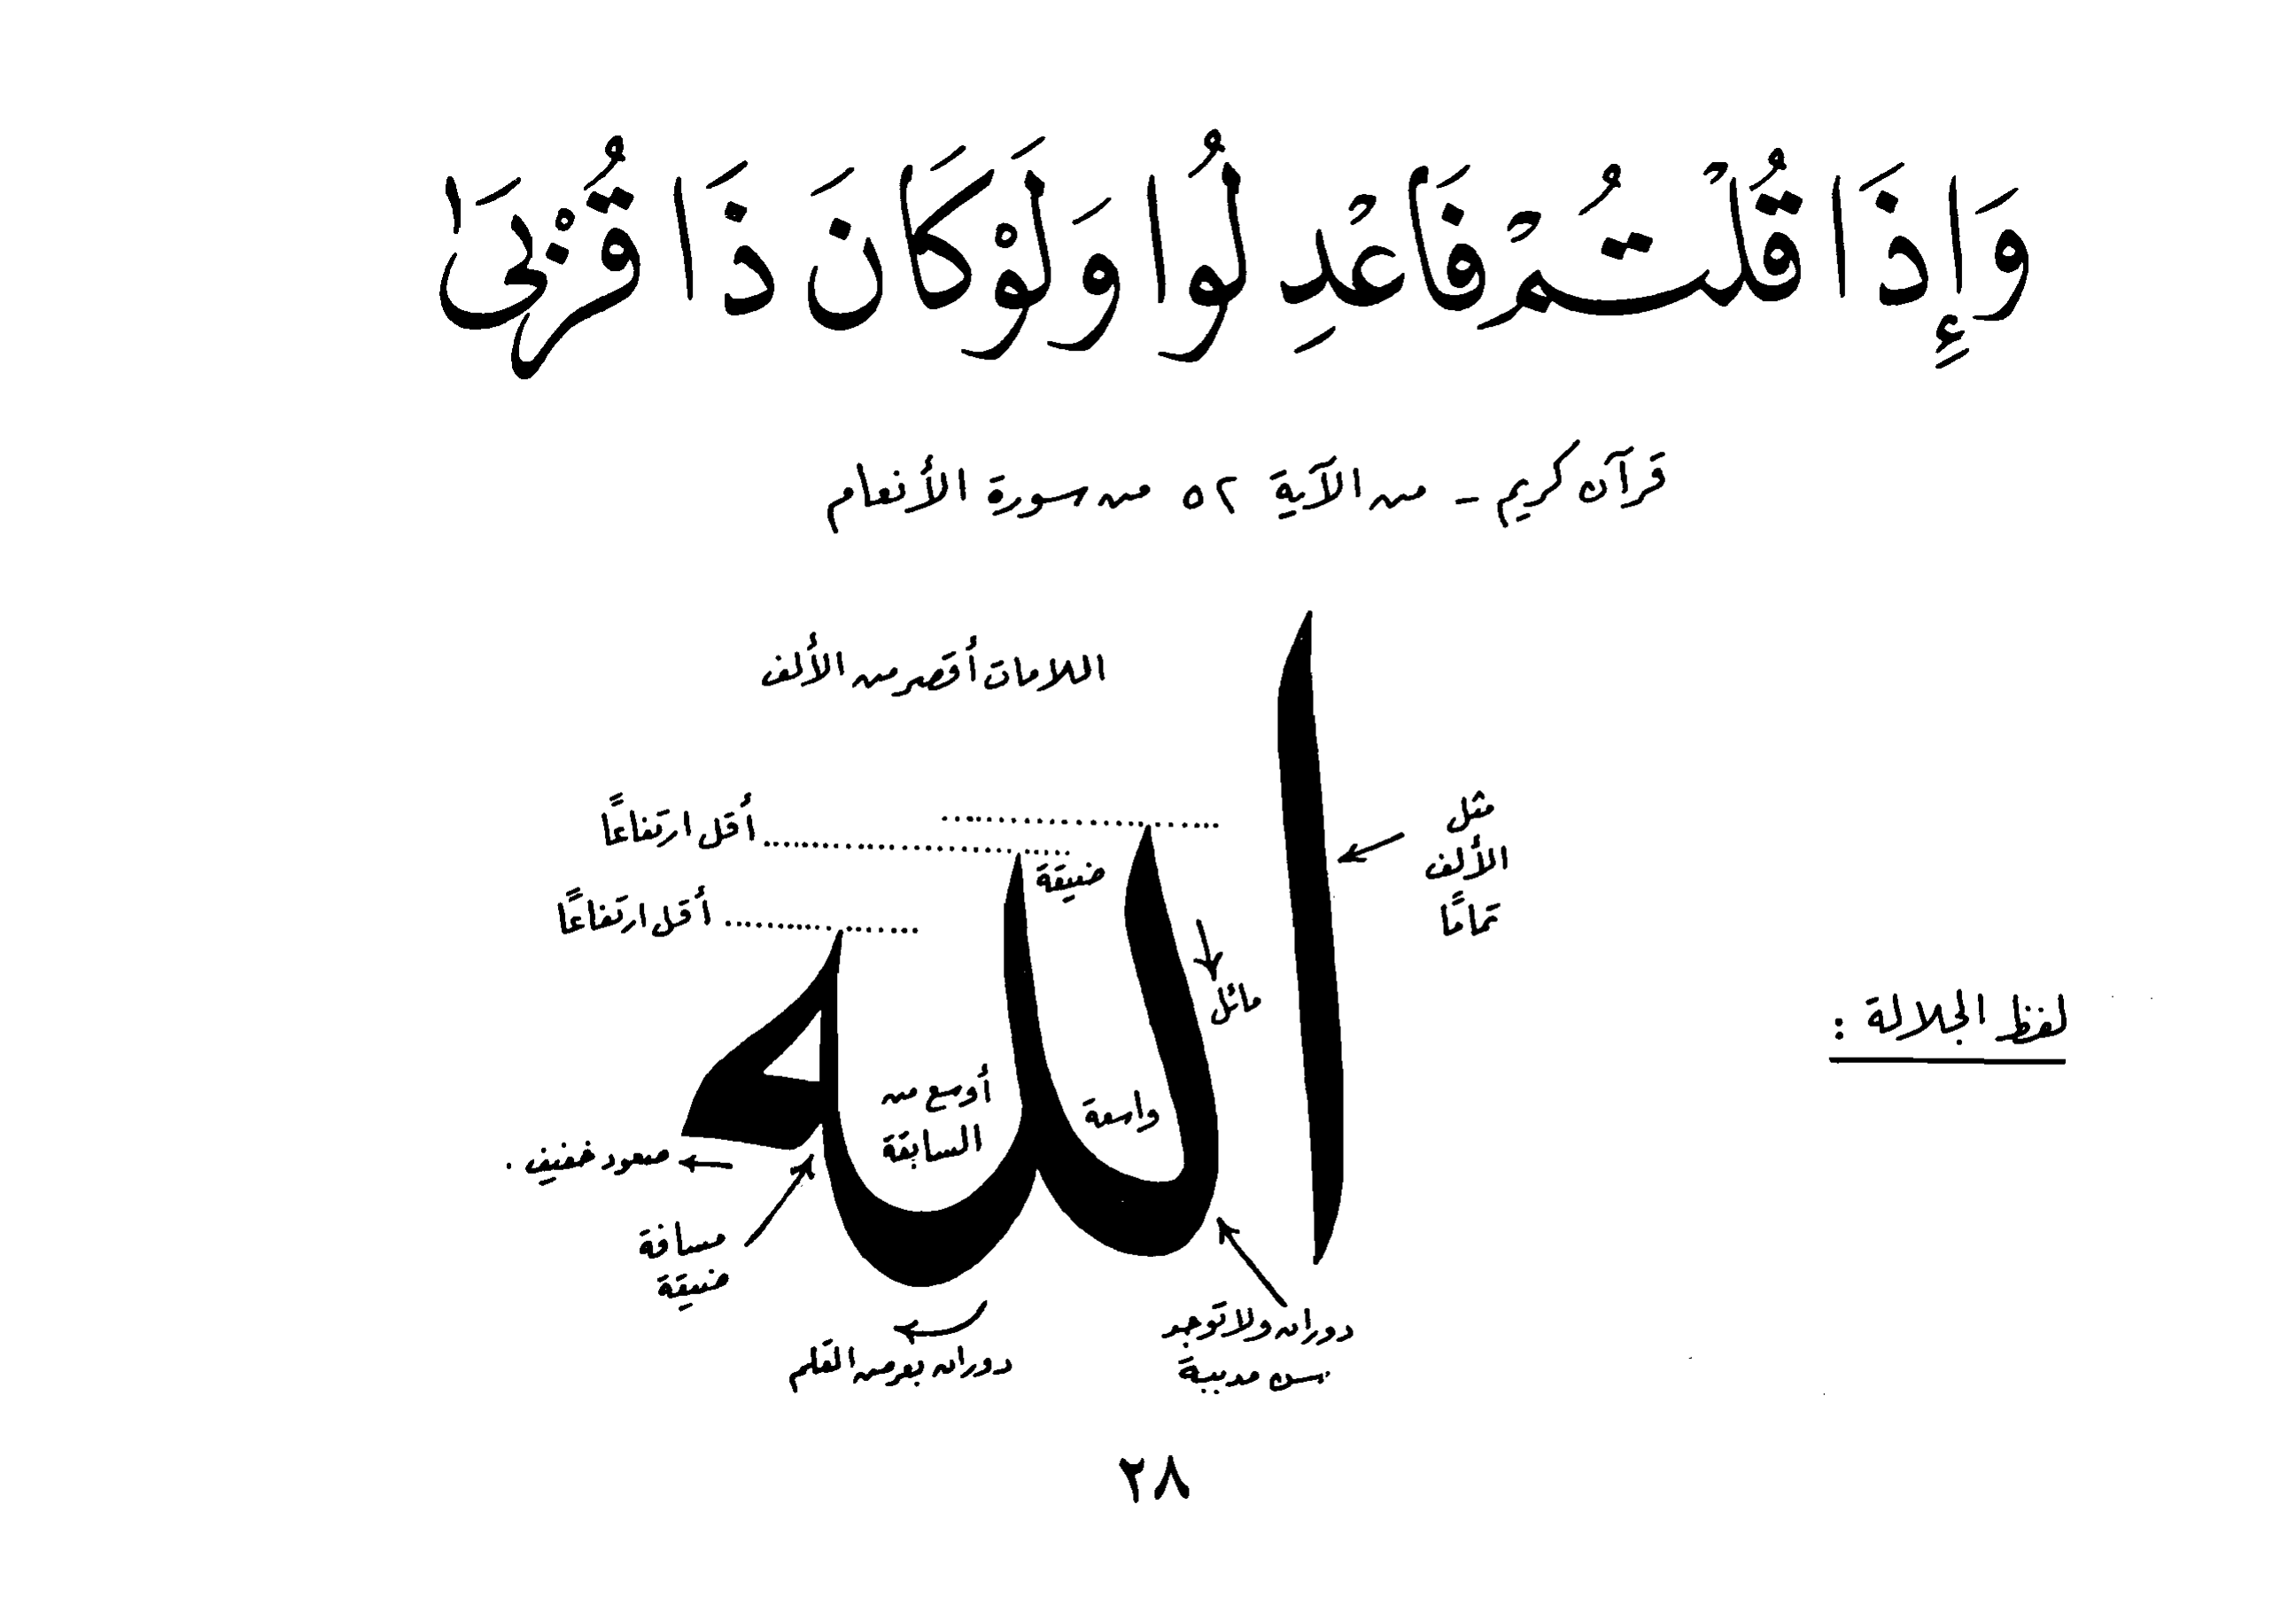 وَإِذَا قُلْتُمْ فَاعْدِلُوا وَلَوْ كَانَ ذَا قُرْبَىٰ
قرآن كريم - من الآية ٥٢ من سورة الأنعام
اللامات أقصر من الألف
مثل
الألف
تمامًا
أقل ارتفاعًا
ضيقة
أقل ارتفاعًا
مائل
لفظ الجلالة :
أوسع من
السابقة
واسعة
صعود خفيف .
مسافة
ضيقة
دوران ولا توجد
سن مدببة
دوران بعرض القلم
٢٨